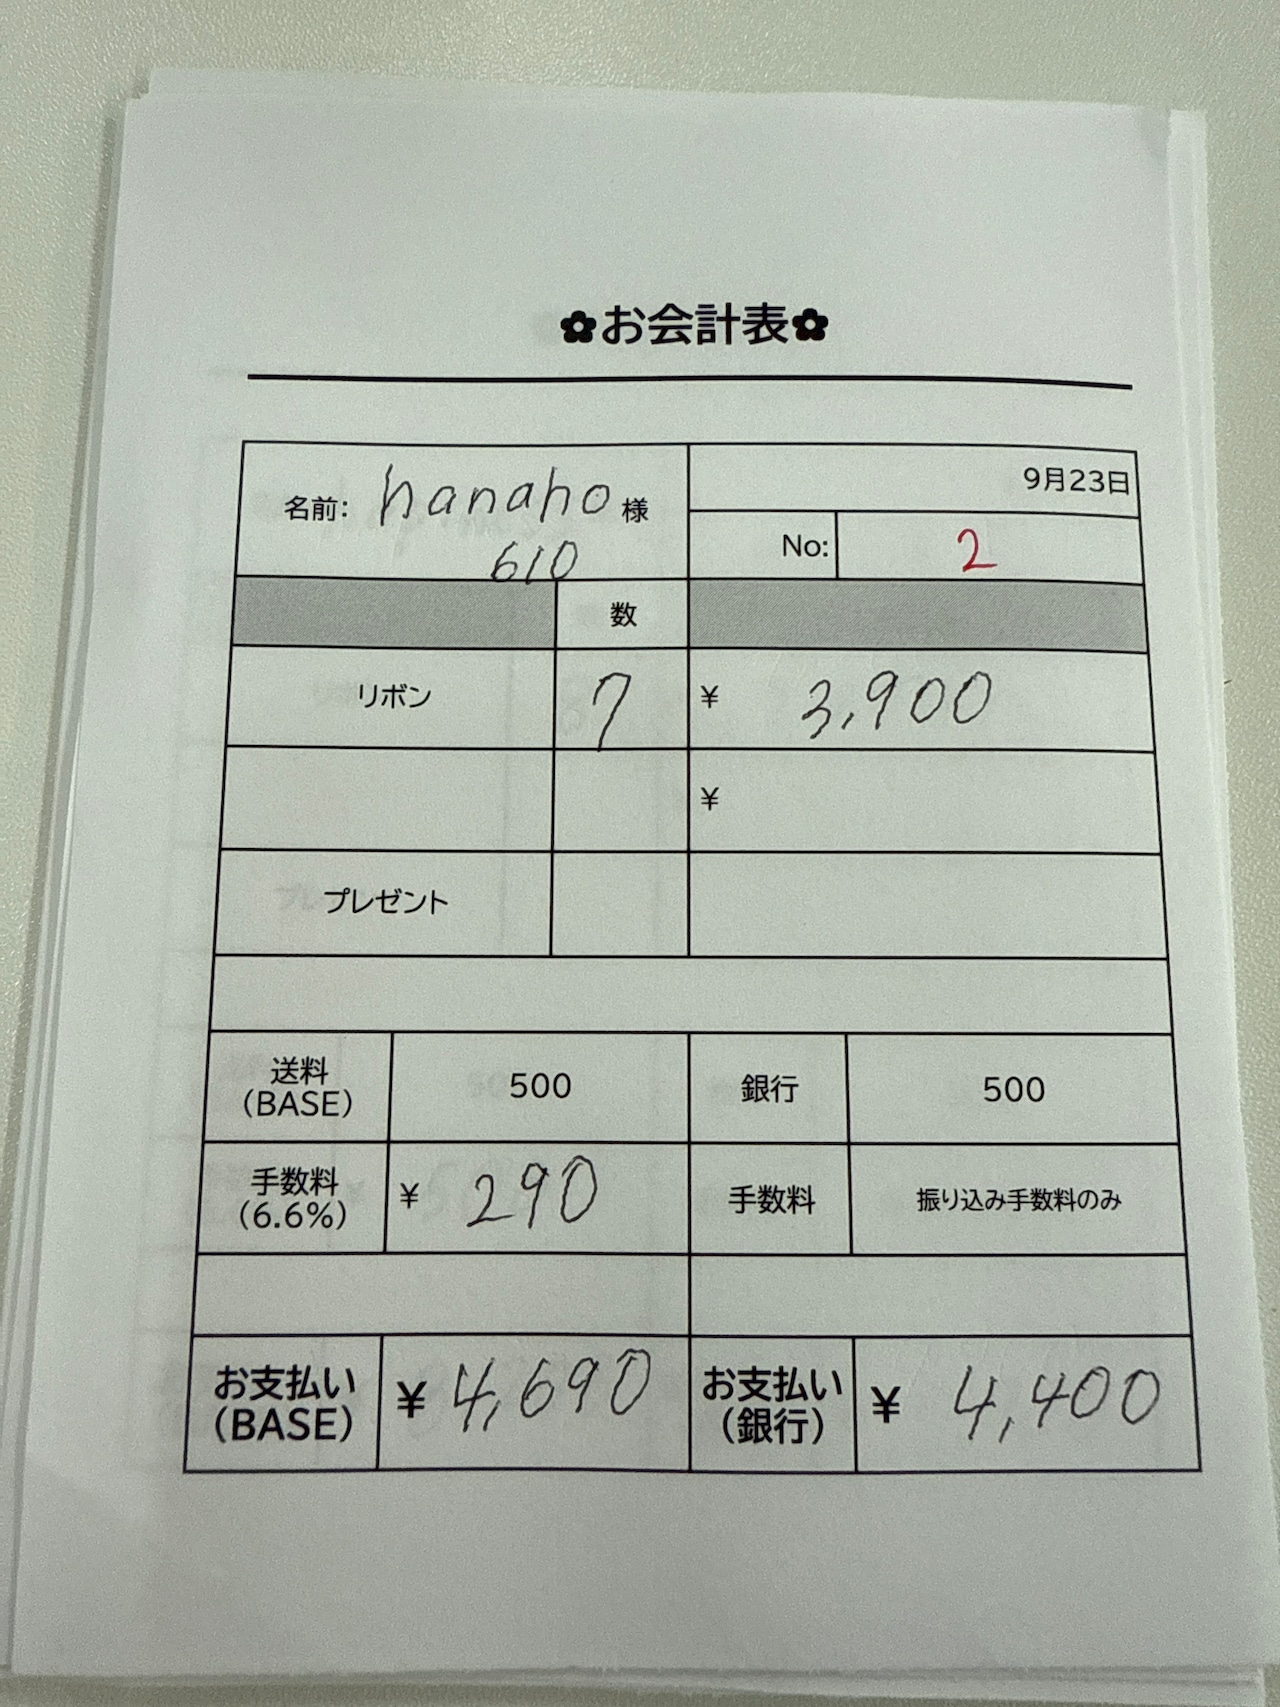 ✿お会計表✿
名前: hanaho 様
610
9月23日
No: 2
数
リボン 7 ¥ 3,900
¥
プレゼント
送料 (BASE) 500 銀行 500
手数料 (6.6%) ¥ 290 手数料 振り込み手数料のみ
お支払い (BASE) ¥ 4,690 お支払い (銀行) ¥ 4,400